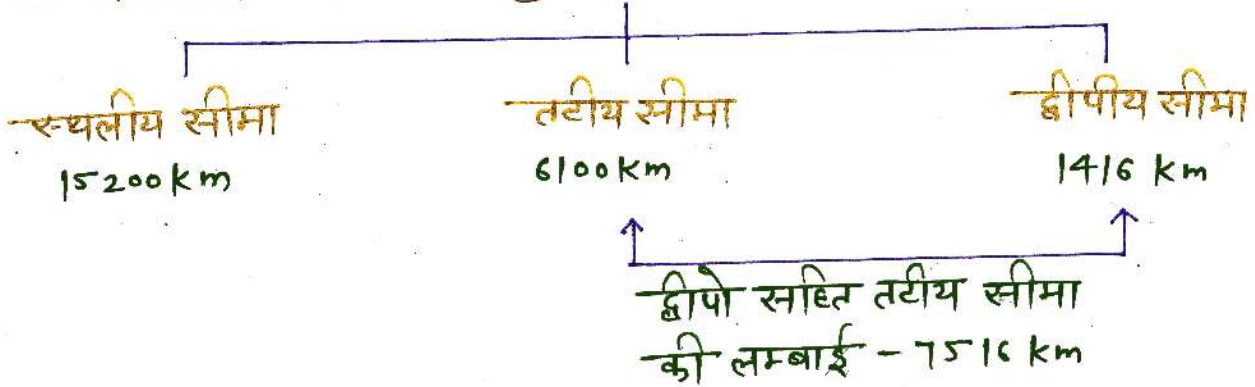 स्थलीय सीमा
15200 km
तटीय सीमा
6100 km
द्वीपीय सीमा
1416 km
द्वीपो सहित तटीय सीमा
की लम्बाई - 7516 km